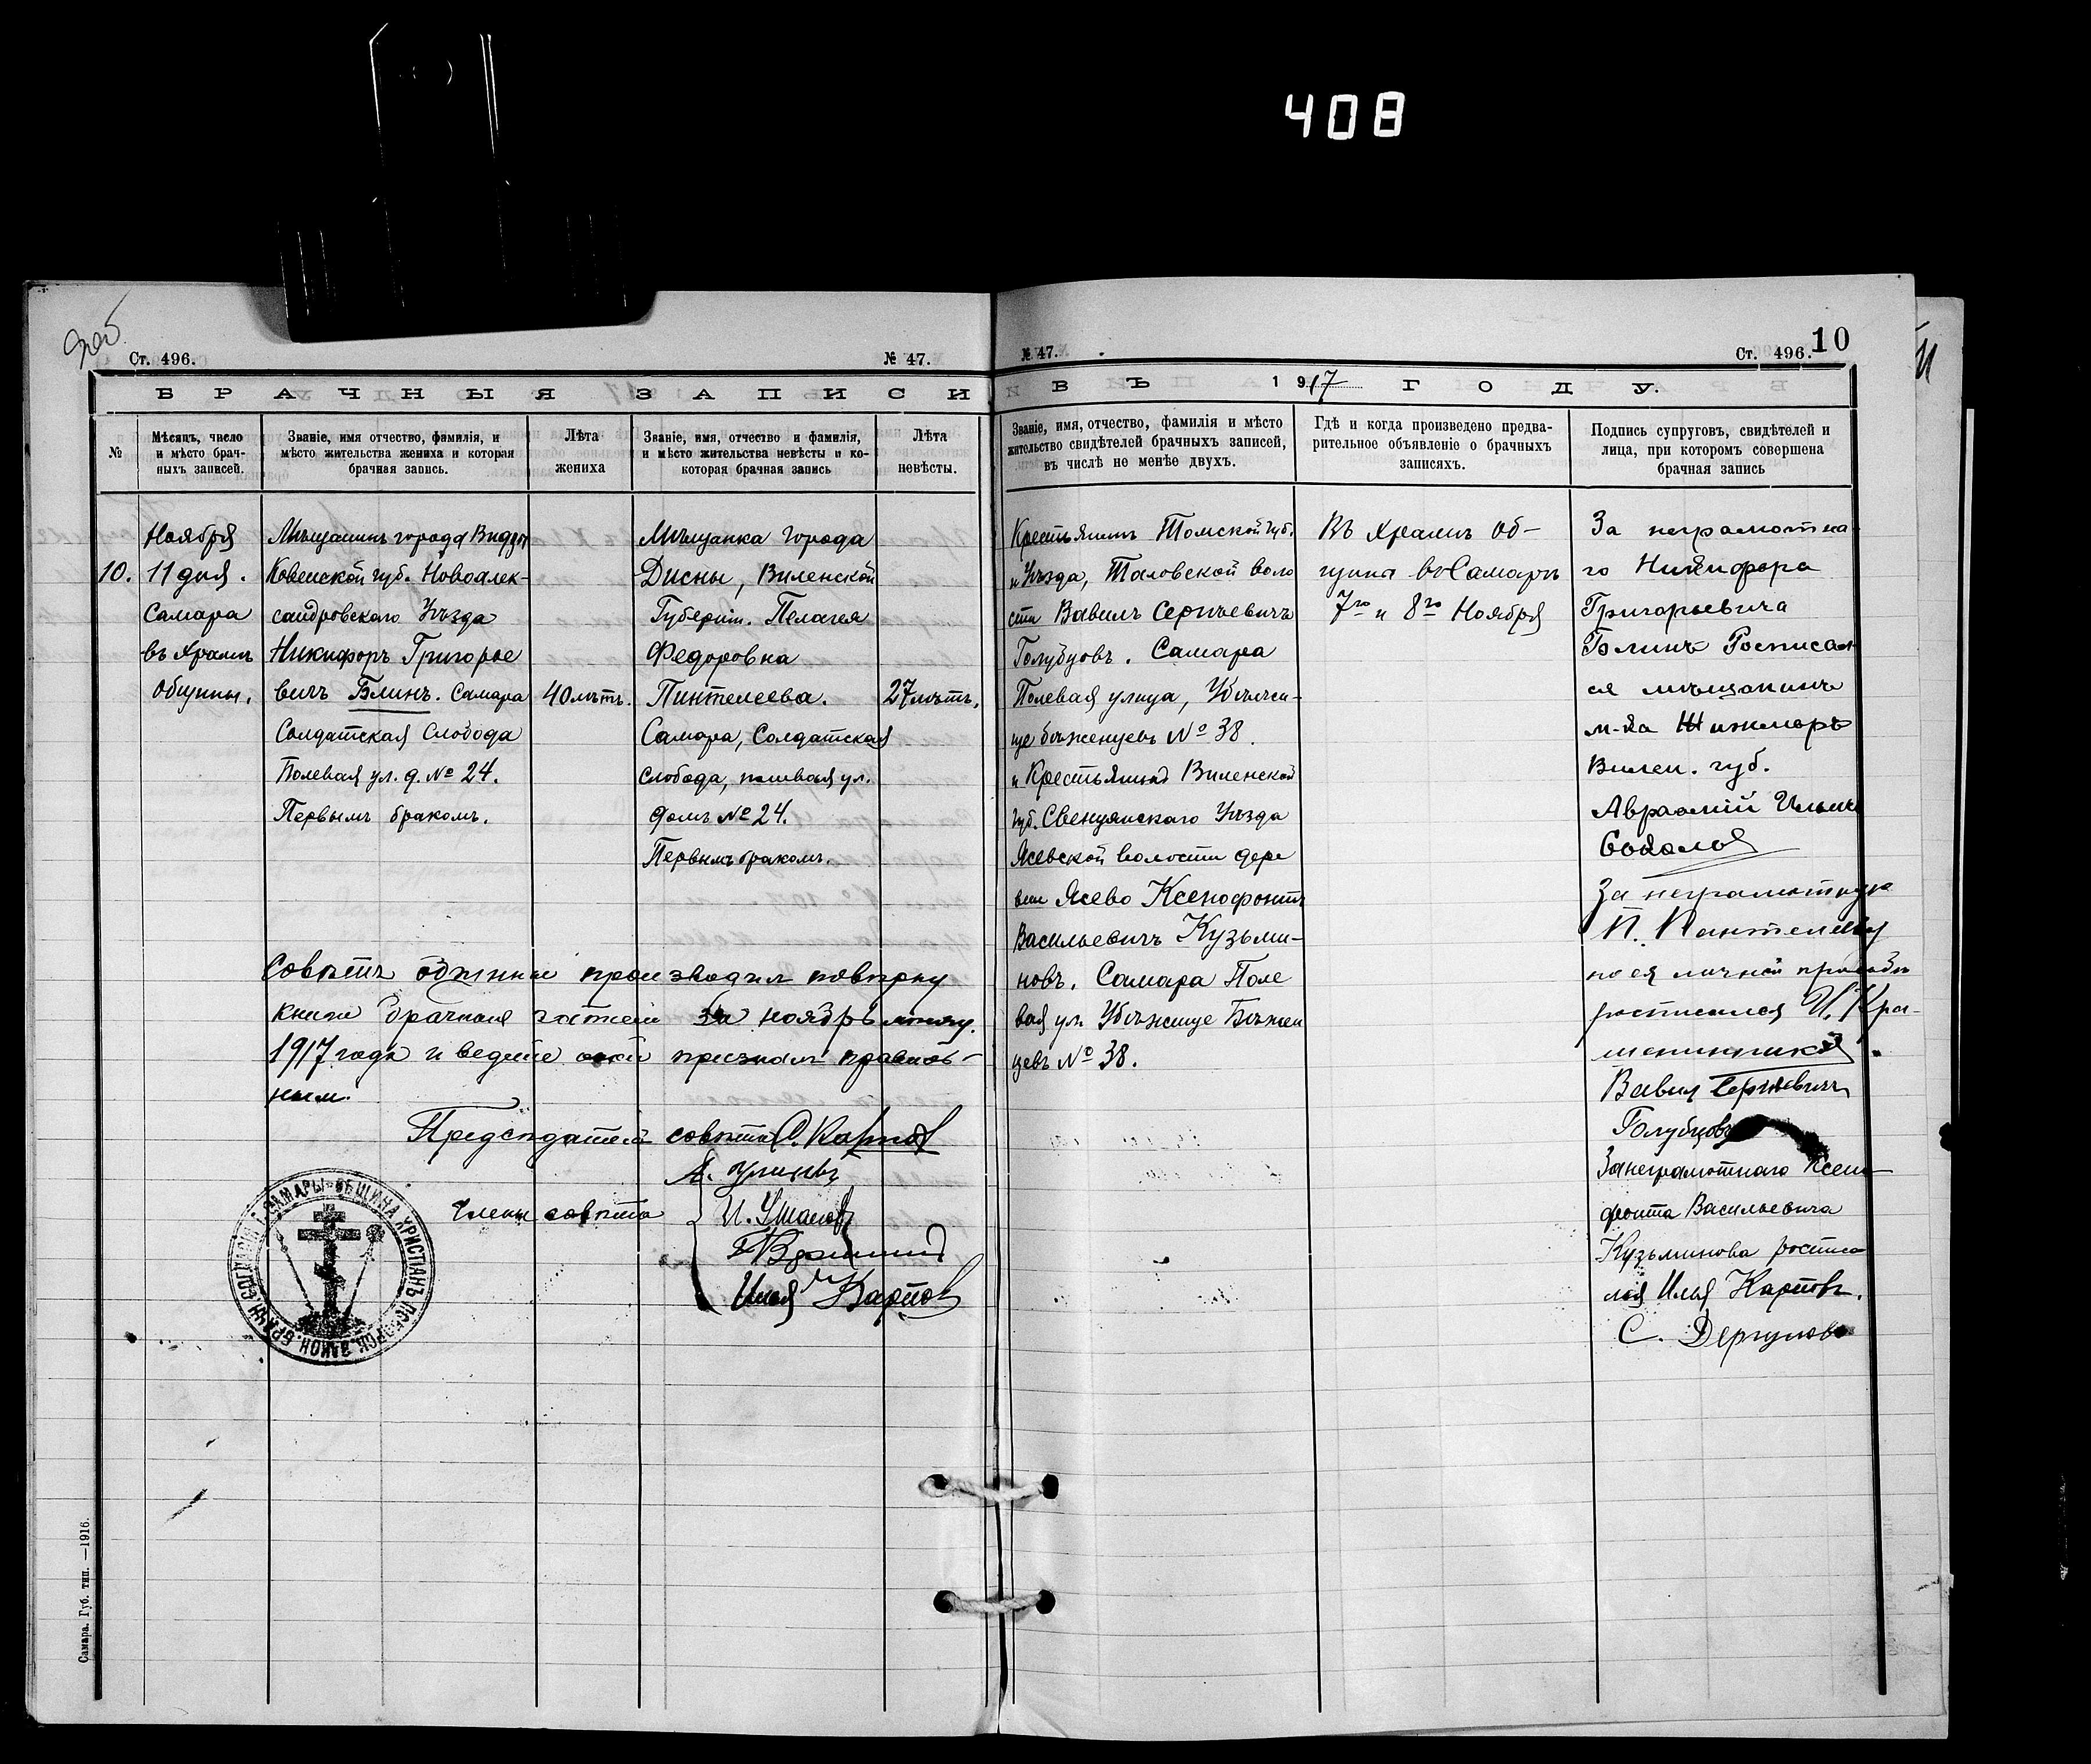 408
Ст. 496.
№ 47.
БРАЧНЫЯ ЗАПИСИ
№
Мѣсяцъ, число
и мѣсто брач-
ныхъ записей.
Званіе, имя отчество, фамилія, и
мѣсто жительства жениха и которая
брачная запись.
Лѣта
жениха
Званіе, имя, отчество и фамилія,
и мѣсто жительства невѣсты и ко-
торая брачная запись
Лѣта
невѣсты.
10.
Ноября
11 дня.
Самара
въ Храмѣ
общины.
Мѣщанинъ города Видзы
Ковенской губ. Новоалек-
сандровскаго Уѣзда
Никифоръ Григорье
вичъ Блинъ. Самара
Солдатская Слобода
Полевая ул. д. № 24.
Первымъ бракомъ.
40 лѣтъ.
Мѣщанка города
Дисны, Виленской
Губерніи. Пелагея
Федоровна
Пинтелеева.
Самара, Солдатская
слобода, полевая ул.
домъ № 24.
Первымъ бракомъ.
27 лѣтъ.
Совѣтъ общины производил повѣрку
книги брачныя за ноябрь мѣсяц
1917 года и признал правиль-
ным.
Председатель совѣта
Члены совѣта
И. Ушаков
Илья Карпов
ОБЩИНА ХРИСТІАНЪ
Самара. Губ. тип. —1916.
№ 47.
Ст. 496.
10
ВЪ 1917 ГОДУ.
Званіе, имя, отчество, фамилія и мѣсто
жительство свидѣтелей брачныхъ записей,
въ числѣ не менѣе двухъ.
Гдѣ и когда произведено предва-
рительное объявленіе о брачныхъ
записяхъ.
Подпись супруговъ, свидѣтелей и
лица, при которомъ совершена
брачная запись
Крестьянинъ Томской губ.
и Уѣзда, Таловской воло
сти Вавилъ Сергѣевичъ
Голубцовъ. Самара
Полевая улица, Убѣжи-
ще бѣженцевъ № 38.
и Крестьянинъ Виленской
губ. Свенцянскаго Уѣзда
Ясевской волости дере
вни Ясево Ксенофонтъ
Васильевичъ Кузьми-
новъ. Самара Поле
вая ул. Убѣжище Бѣжен
цевъ № 38.
Въ Храмѣ об-
щины въ Самарѣ
7го и 8го Ноября
За неграмотна
го Никифора
Григорьевича
Блинъ Росписал
ся мѣщанинъ
м-ка Жижморъ
Вилен. губ.
Авраамій Ильичъ
За неграмотную
П. Пантелееву
по ея личной просьбѣ
росписался И. Кра-
Вавил Сергѣевичъ
Голубцовъ
За неграмотнаго Ксено
фонта Васильевича
Кузьминова росписа
лся Илья Карповъ.
С. Дергуновъ